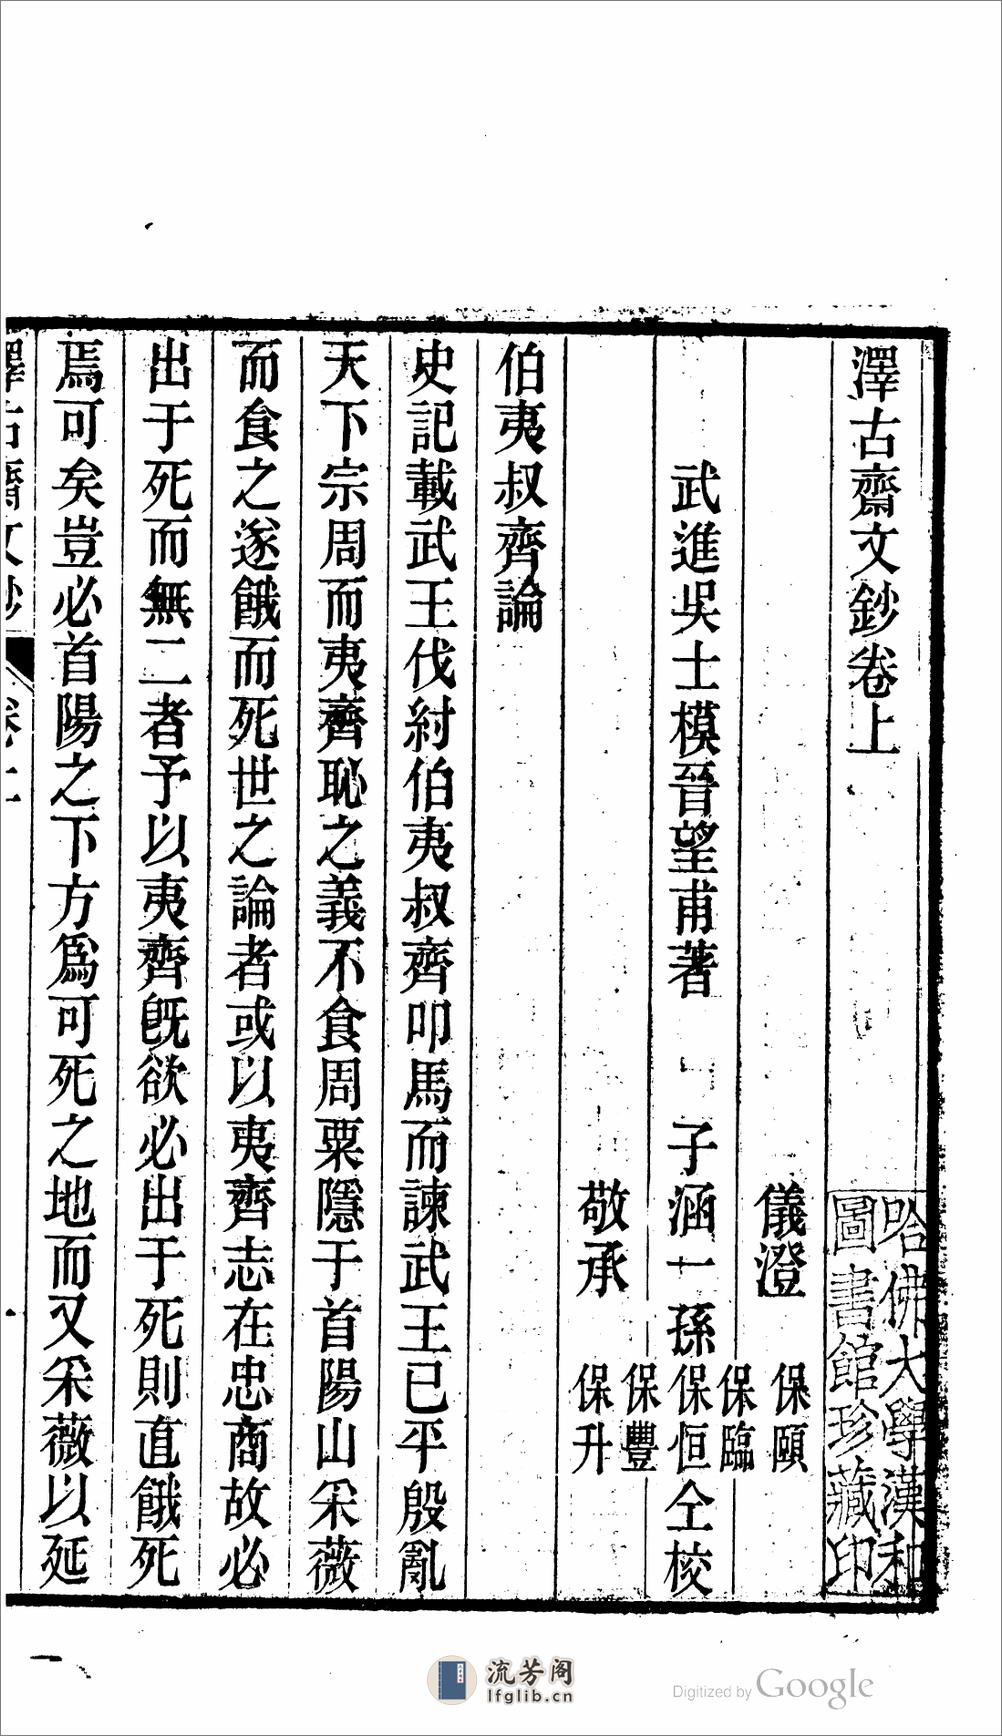 澤古齋文鈔卷上
哈佛大學漢和
圖書館珍藏印
儀澄
保頤
保臨
武進吳士模晉望甫著
子涵一孫
保恒仝校
敬承
保豐
保升
伯夷叔齊論
史記載武王伐紂伯夷叔齊叩馬而諫武王已平殷亂
天下宗周而夷齊恥之義不食周粟隱于首陽山采薇
而食之遂餓而死世之論者或以夷齊志在忠商故必
出于死而無二者予以夷齊旣欲必出于死則直餓死
焉可矣豈必首陽之下方爲可死之地而又采薇以延
澤古齋文鈔
卷上
一
流芳阁
lfglib.cn
Digitized by Google